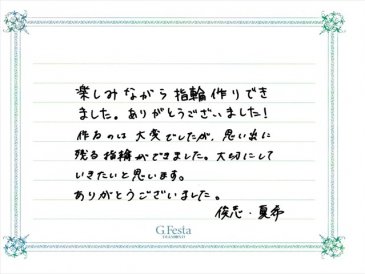 楽しみながら指輪作りでき
ました。ありがとうございました!
作るのは大変でしたが、思い出に
残る指輪ができました。大切にして
いきたいと思います。
ありがとうございました。
俊志・夏希
G.Festa